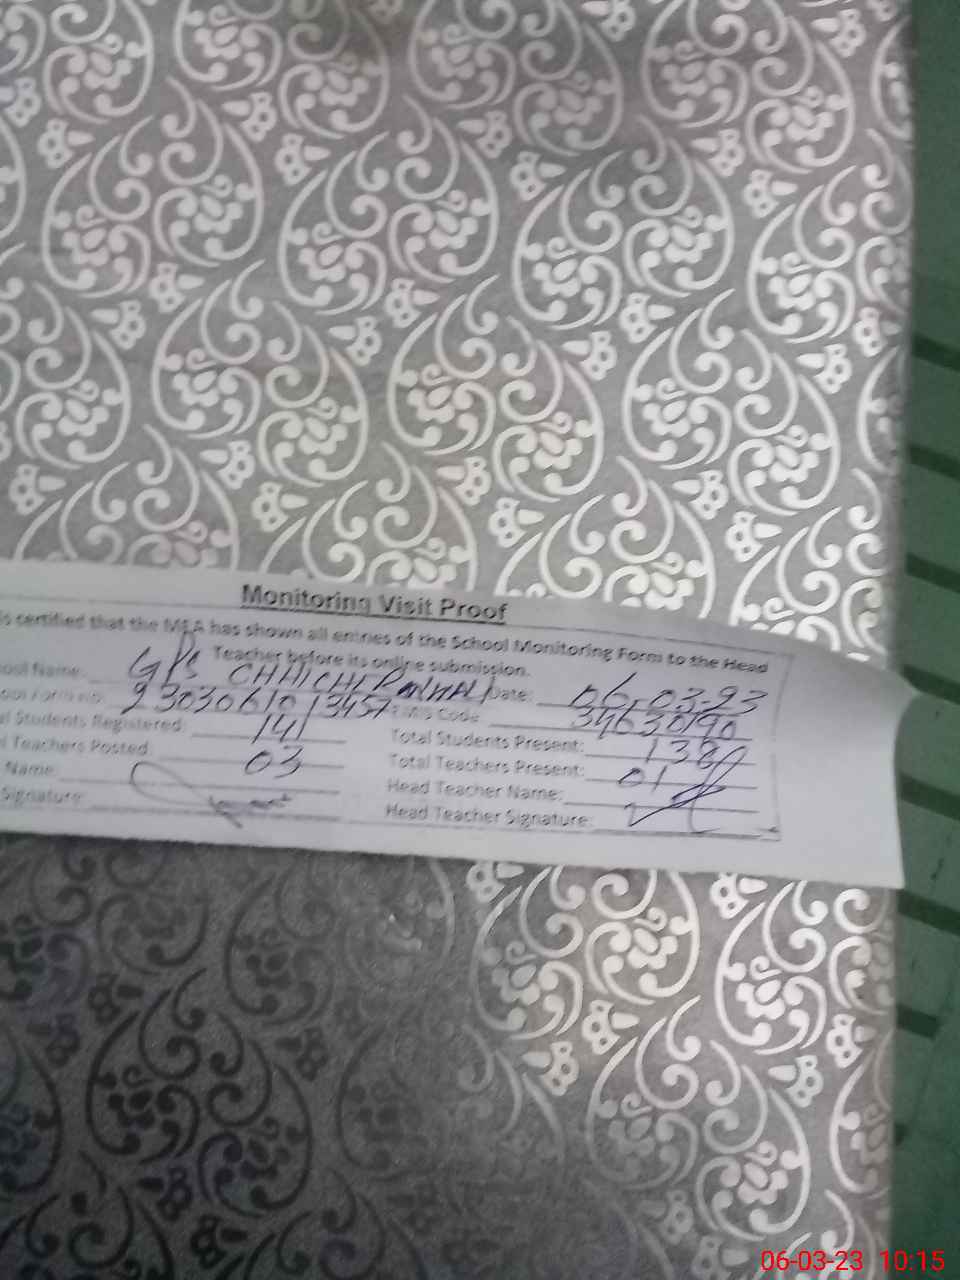 Monitoring Visit Proof
is certified that the MEA has shown all entries of the School Monitoring Form to the Head
Teacher before its online submission.
ool Name: GPS CHHICHI Date: 06-03-23
23030610 EMIS Code 34630190
al Students Registered: 141 Total Students Present: 138
l Teachers Posted: 03 Total Teachers Present: 01
Name: Head Teacher Name:
Signature: Head Teacher Signature:
06-03-23 10:15